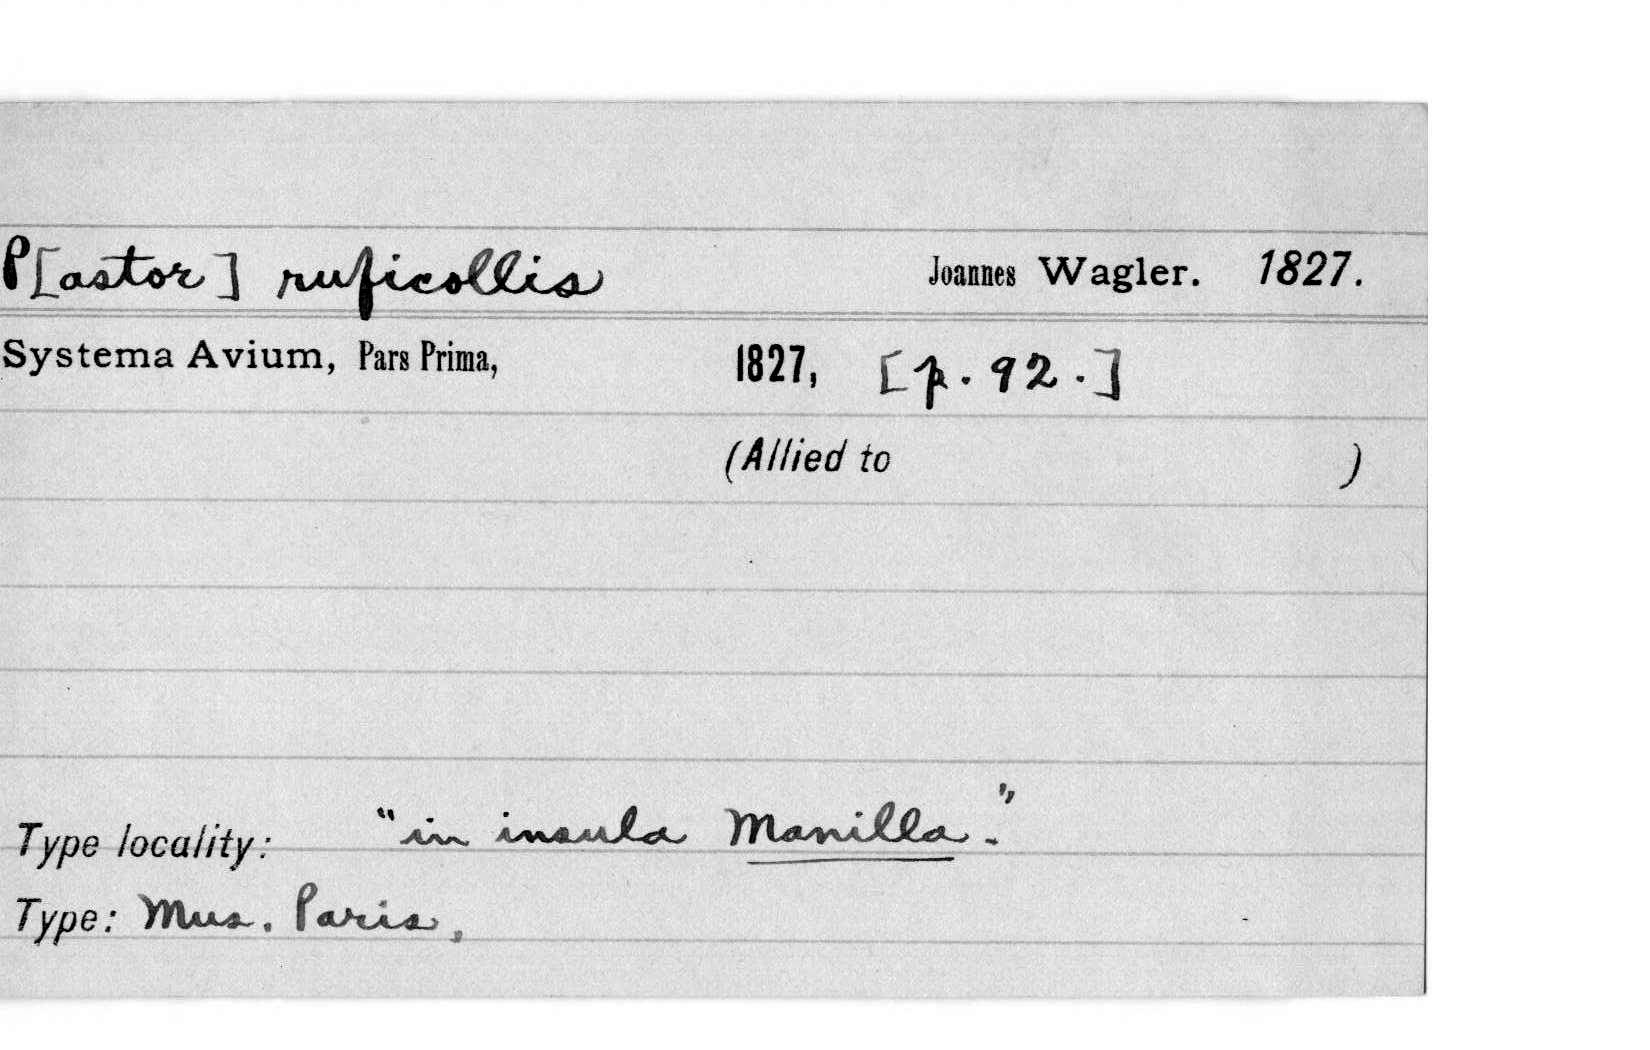 P[astor] ruficollis Joannes Wagler. 1827.
Systema Avium, Pars Prima, 1827, [p. 92.]
(Allied to )
Type locality: "in insula Manilla."
Type: Mus. Paris,